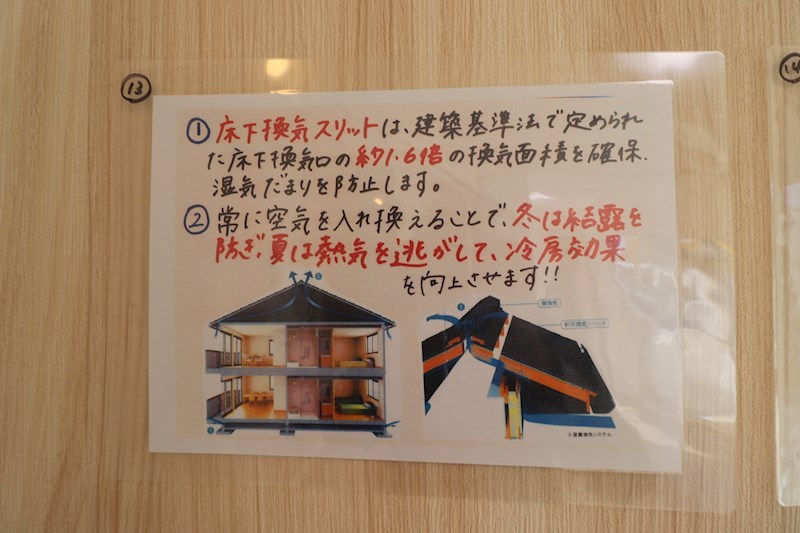 13
14
① 床下換気スリットは、建築基準法で定められ
た床下換気口の約1.6倍の換気面積を確保、
湿気だまりを防止します。
② 常に空気を入れ換えることで、冬は結露を
防ぎ、夏は熱気を逃がして、冷房効果
を向上させます!!
軒天換気スリット